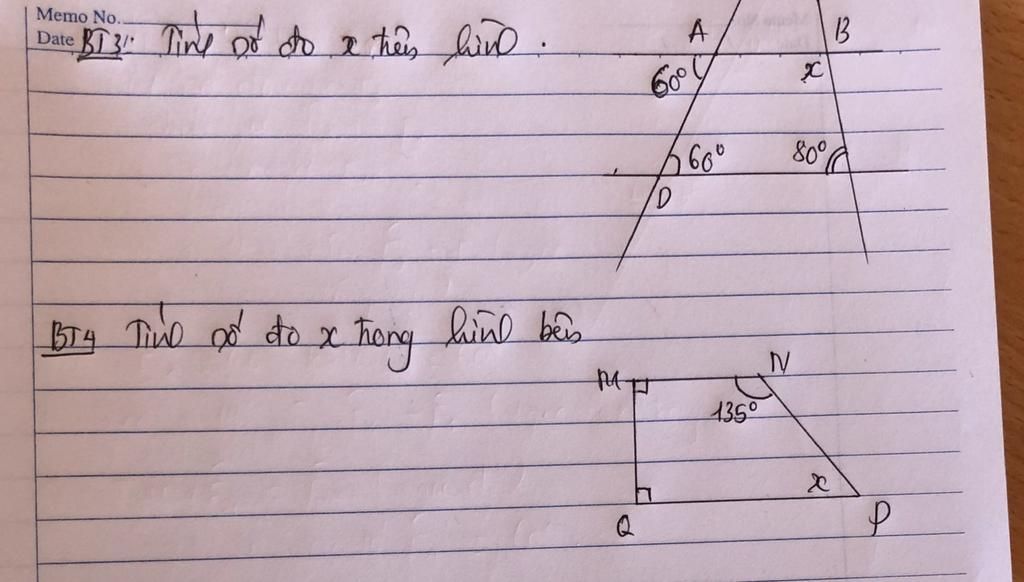 Memo No.
Date
BT3: Tính số đo x trên hình.
A
B
60°
x
60°
80°
D
BT4 Tính số đo x trong hình bên
M
N
135°
x
Q
P